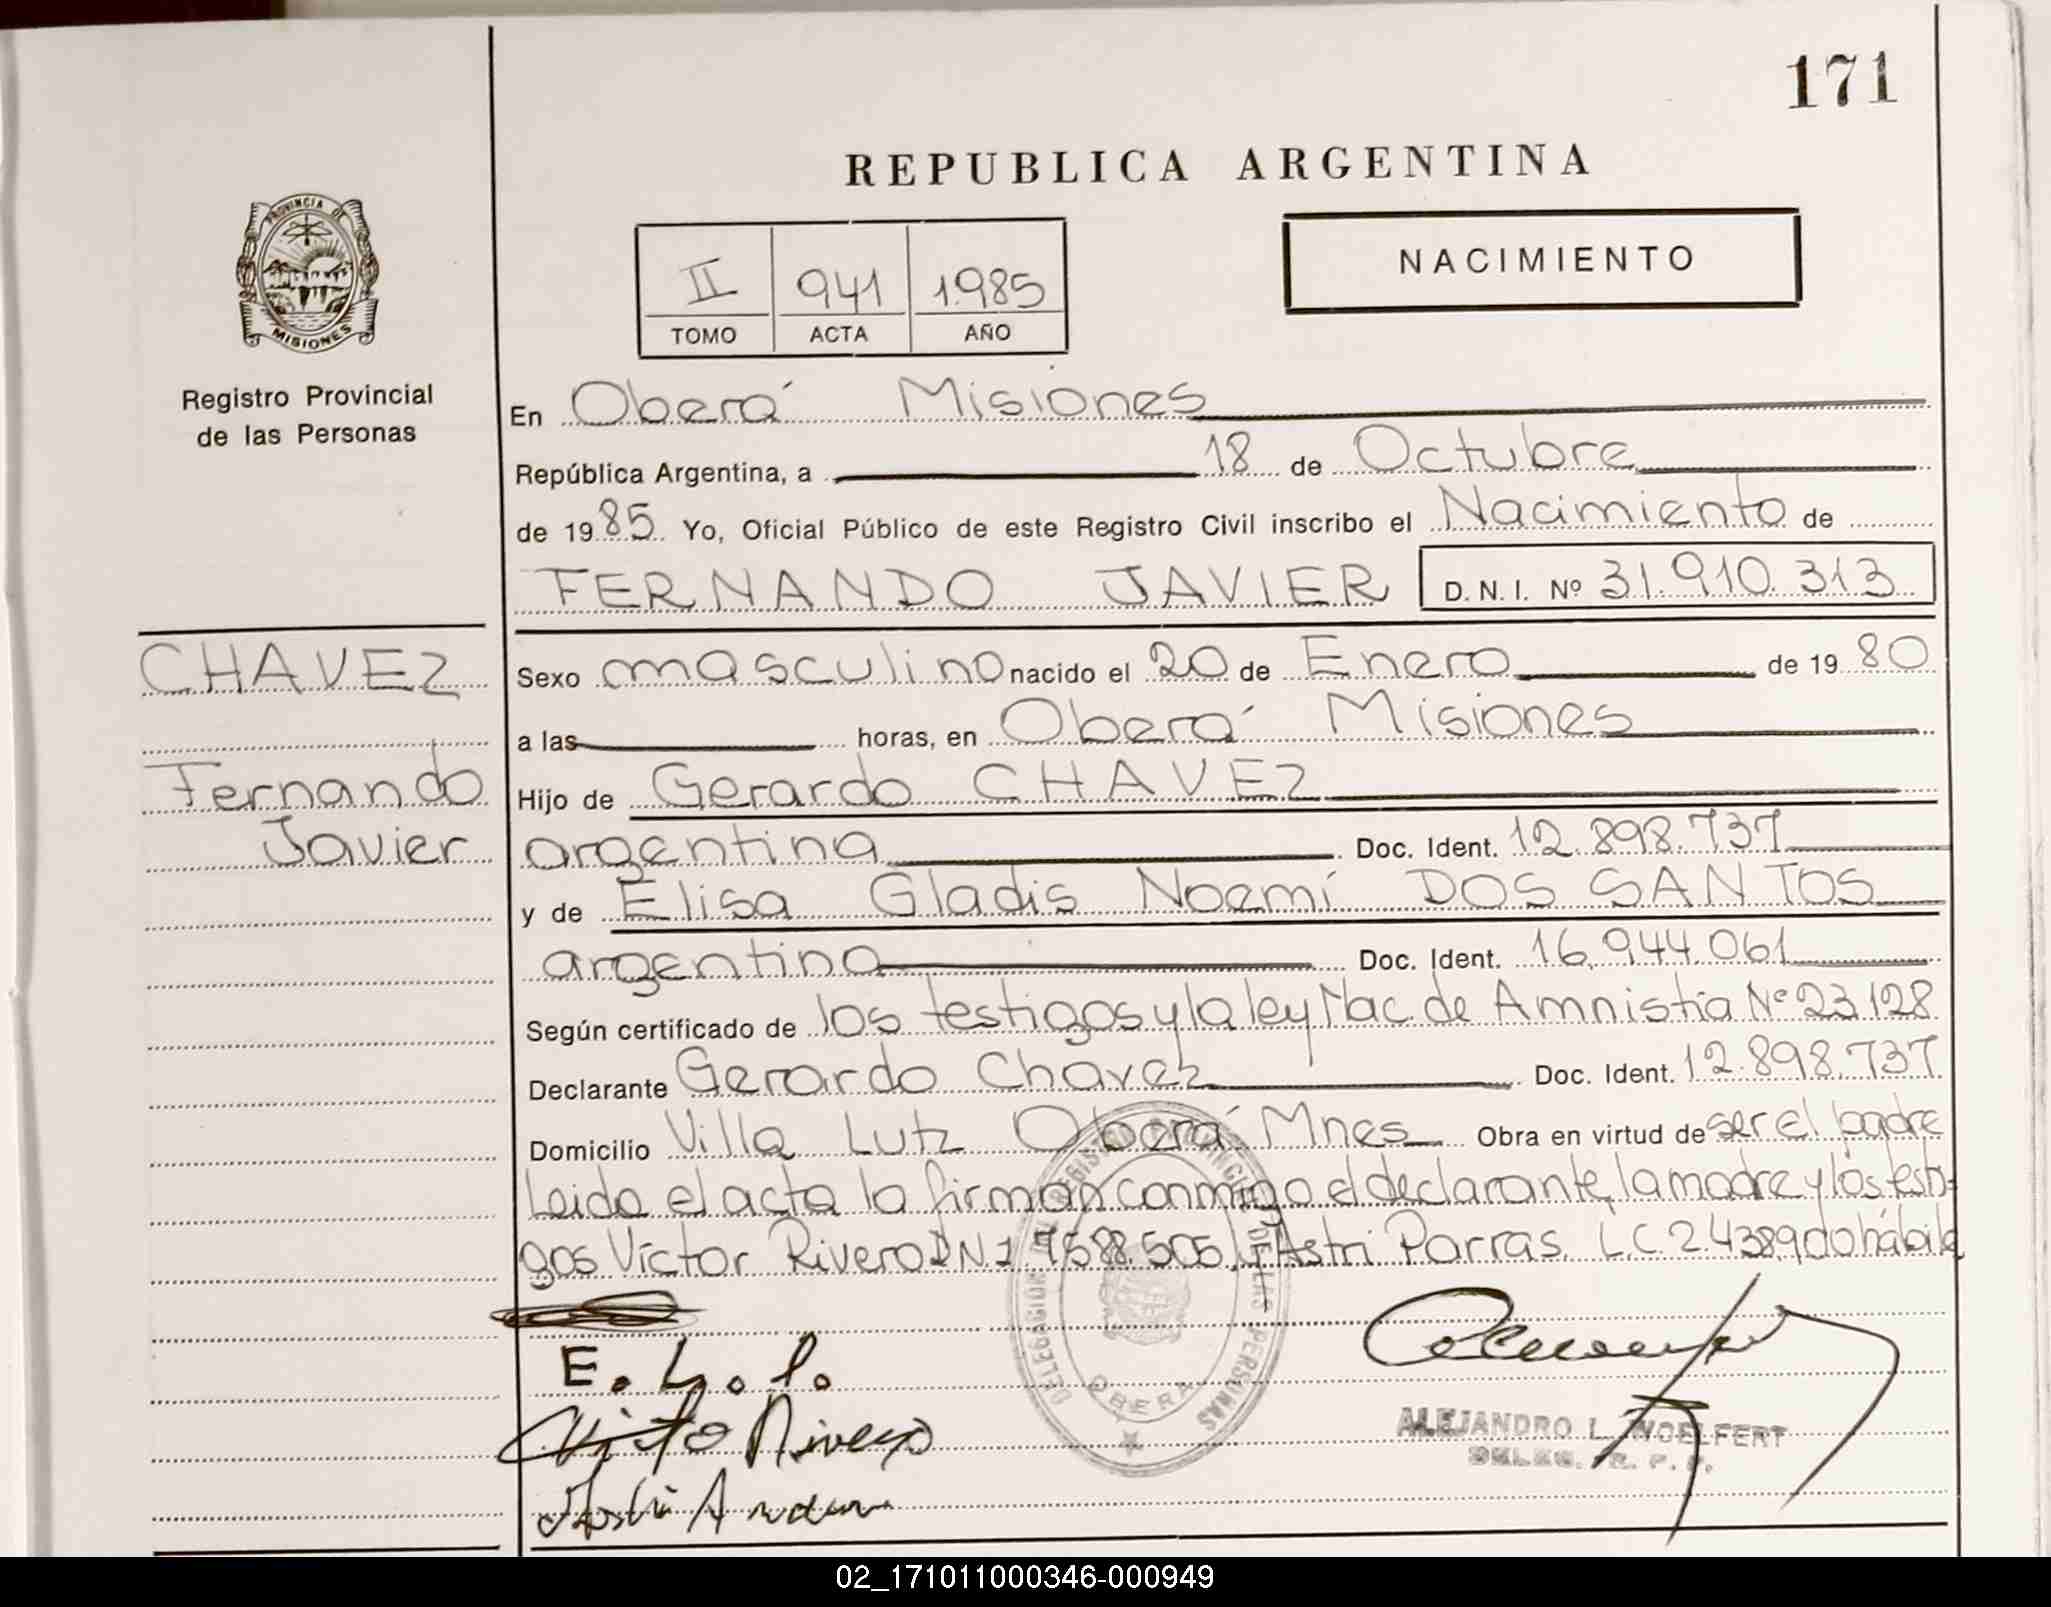 171
REPUBLICA ARGENTINA
PROVINCIA DE
MISIONES
II 941 1985
TOMO ACTA AÑO
NACIMIENTO
Registro Provincial
de las Personas
En Oberá Misiones
República Argentina, a 18 de Octubre
de 1985 Yo, Oficial Público de este Registro Civil inscribo el Nacimiento de
FERNANDO JAVIER D. N. I. Nº 31.910.313
CHAVEZ
Fernando
Javier
Sexo masculino nacido el 20 de Enero de 1980
a las horas, en Oberá Misiones
Hijo de Gerardo CHAVEZ
argentina Doc. Ident. 12.898.737
y de Elisa Gladis Noemí DOS SANTOS
argentina Doc. Ident. 16.944.061
Según certificado de los testigos y la ley Nac. de Amnistia Nº 23.128
Declarante Gerardo Chavez Doc. Ident. 12.898.737
Domicilio Villa Lutz Oberá Mnes Obra en virtud de ser el padre
Leida el acta la firman conmigo el declarante, la madre y los testi-
gos Víctor Rivero DNI 7.588.505, Astri Parras L.C. 2.4389 do hábil
E. L. P.
DELEGACION DEL REGISTRO PROVINCIAL DE LAS PERSONAS
OBERA
ALEJANDRO L. WOELFERT
DELEG. R. P. P.
02_171011000346-000949